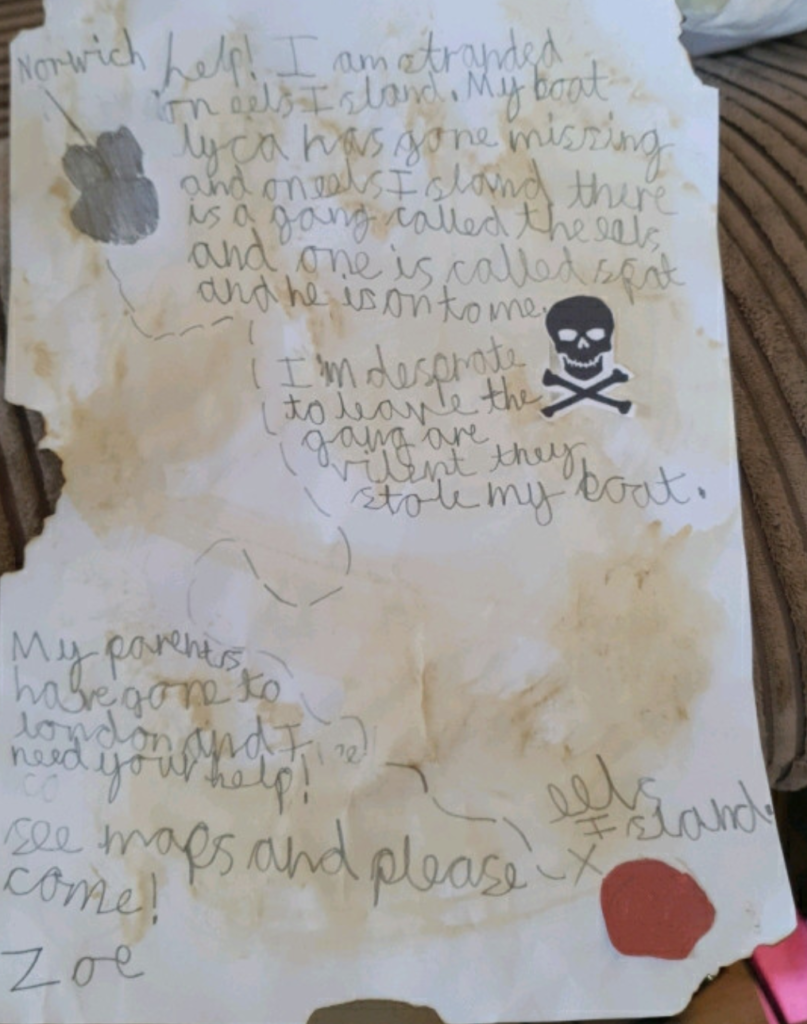 Norwich
help! I am stranded
on eels Island. My boat
lyca has gone missing
and on eels Island there
is a gang called the eels
and one is called spat
and he is on to me.
I'm desprate
to leave the
gang are
vilent they
stole my boat.
My parents
have gone to
london and I
need your help!
see maps and please
come!
Zoe
eels
Island.
X